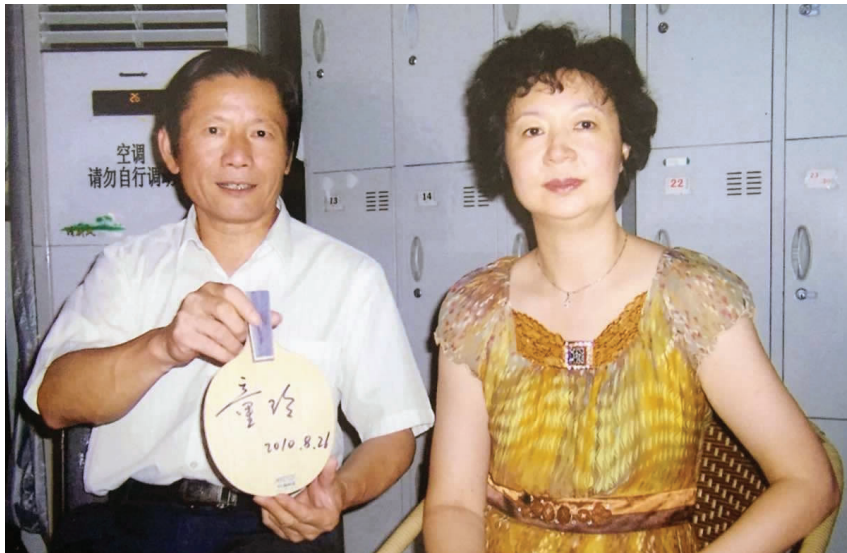 空调
请勿自行调
13
14
22
童玲
2010.8.21